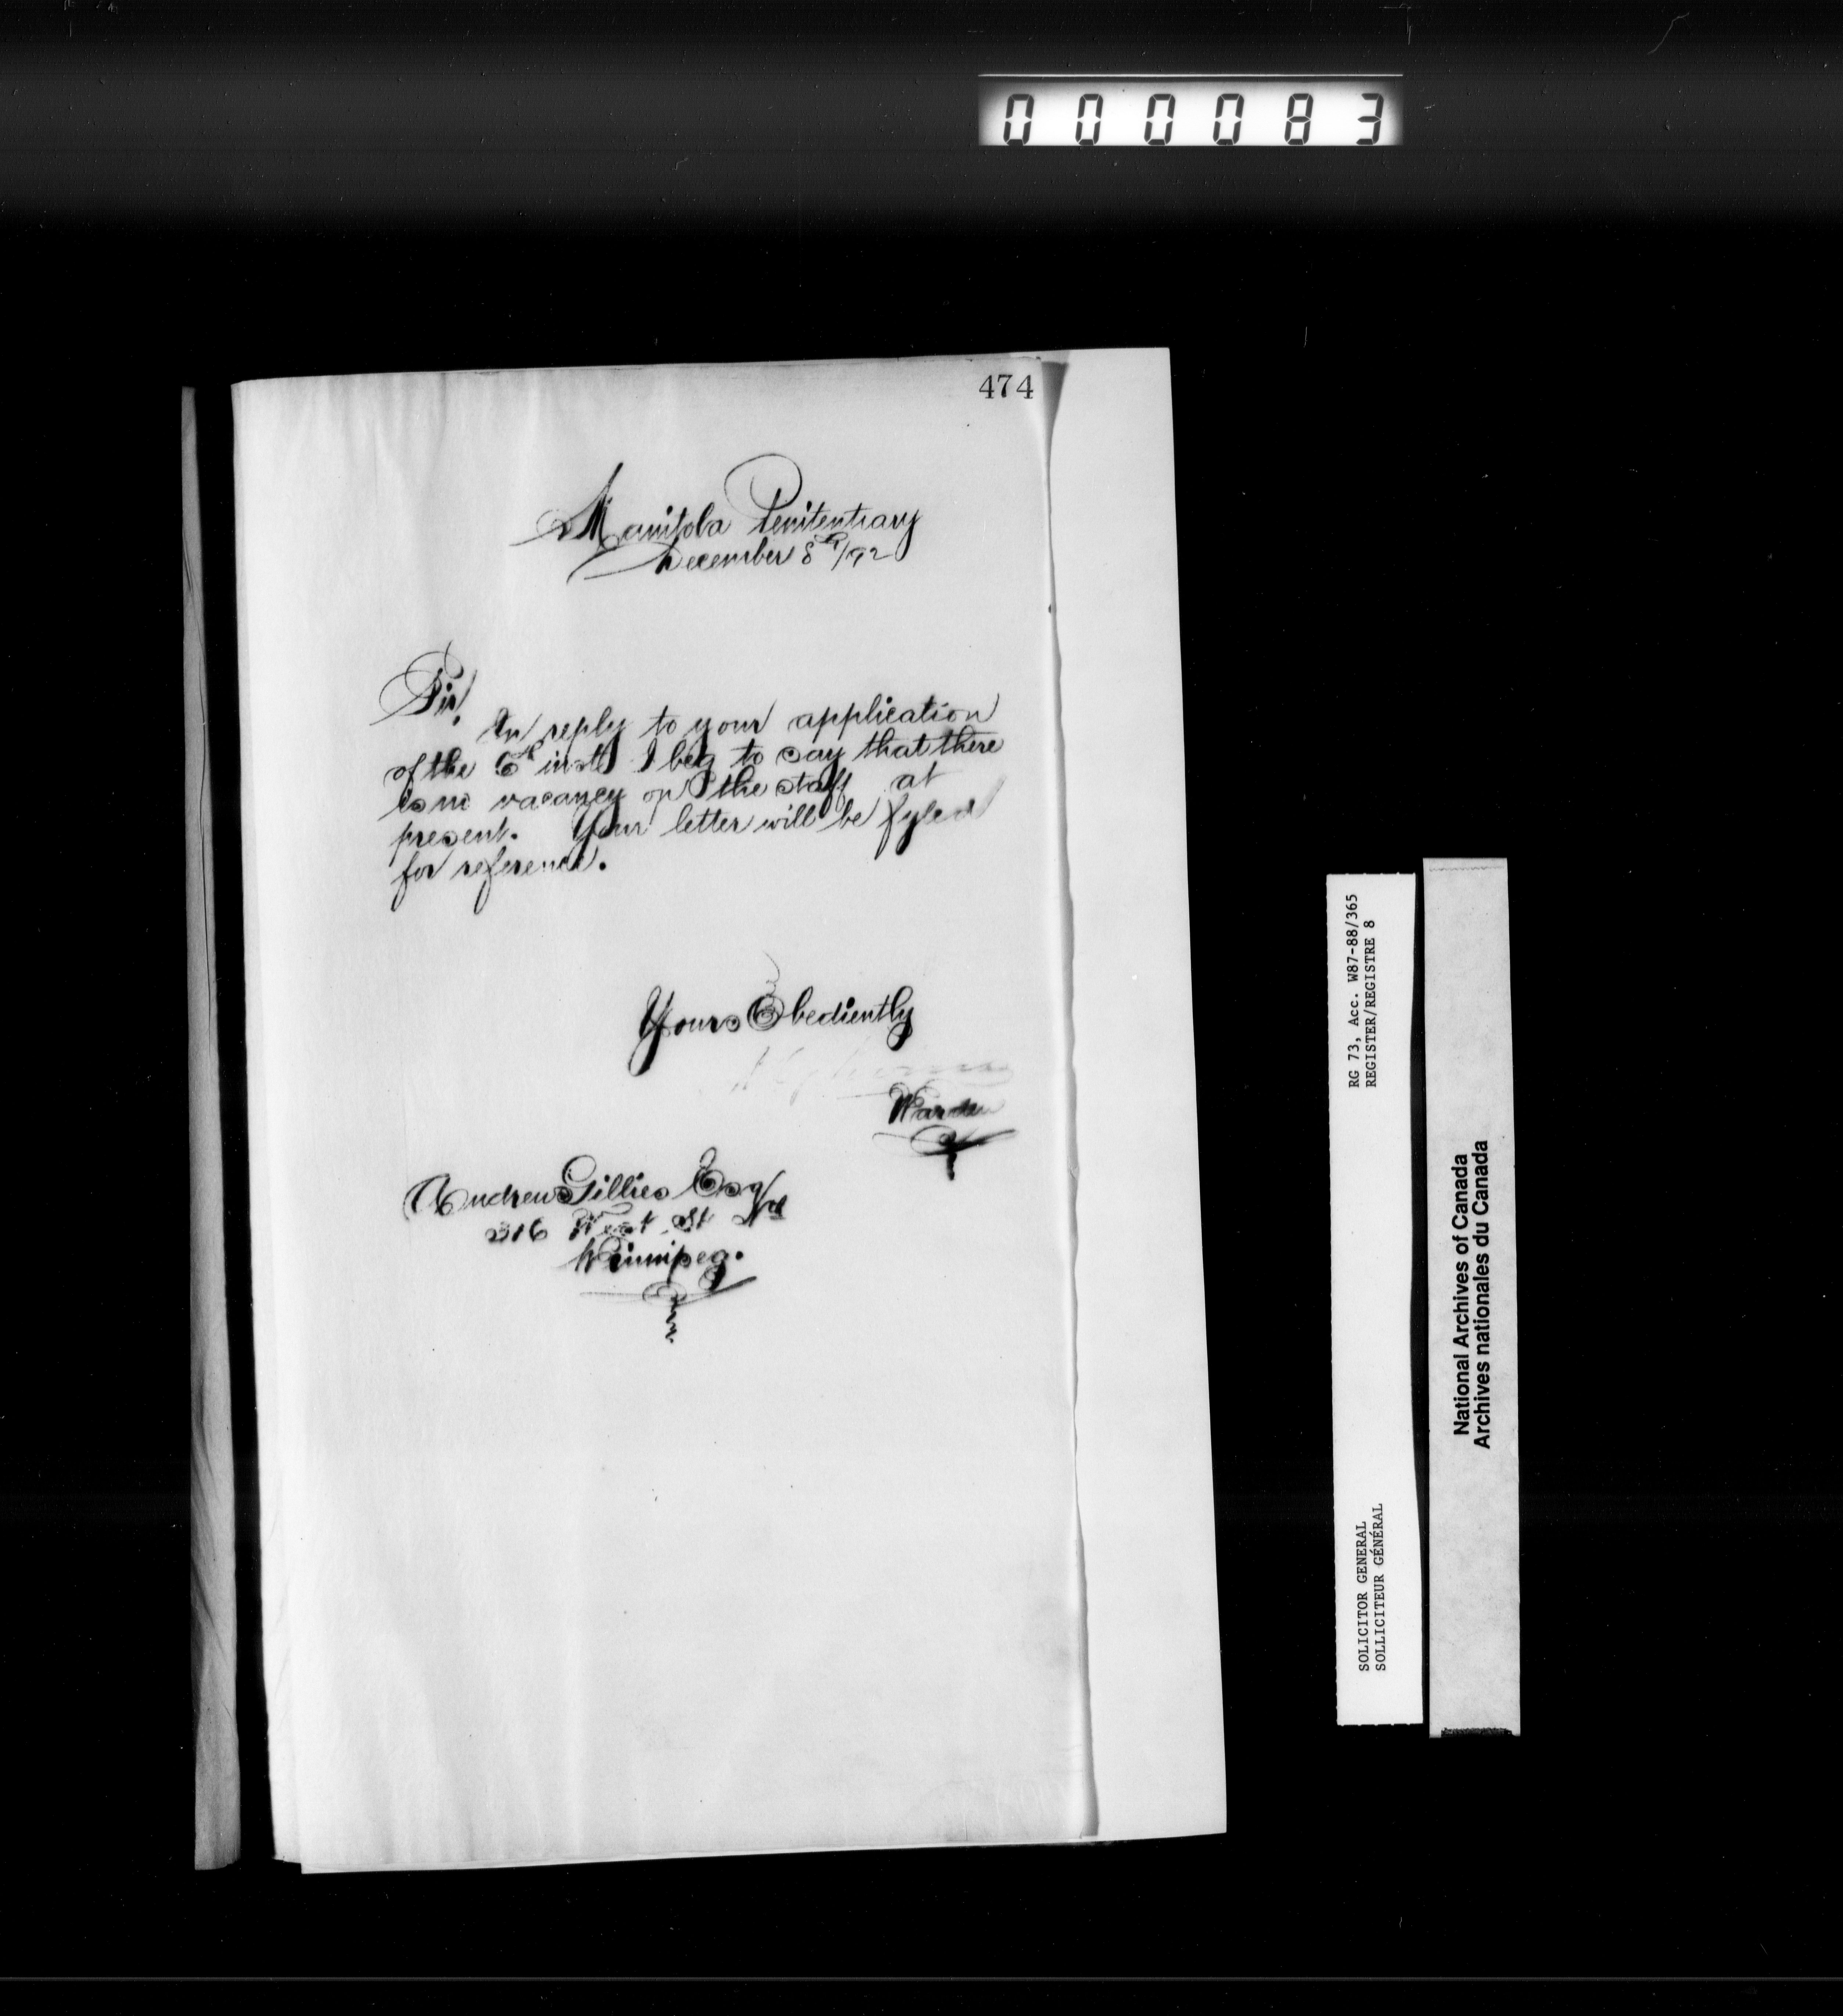 000083
474
Manitoba Penitentiary
December 8th/92
Sir,
In reply to your application
of the 6th inst I beg to say that there
is no vacancy on the staff at
present. Your letter will be fyled
for reference.
Yours Obediently
Warden
Andrew Gillies Esqre
316 West St
Winnipeg.
RG 73, Acc. W87-88/365
REGISTER/REGISTRE 8
SOLICITOR GENERAL
SOLLICITEUR GÉNÉRAL
National Archives of Canada
Archives nationales du Canada